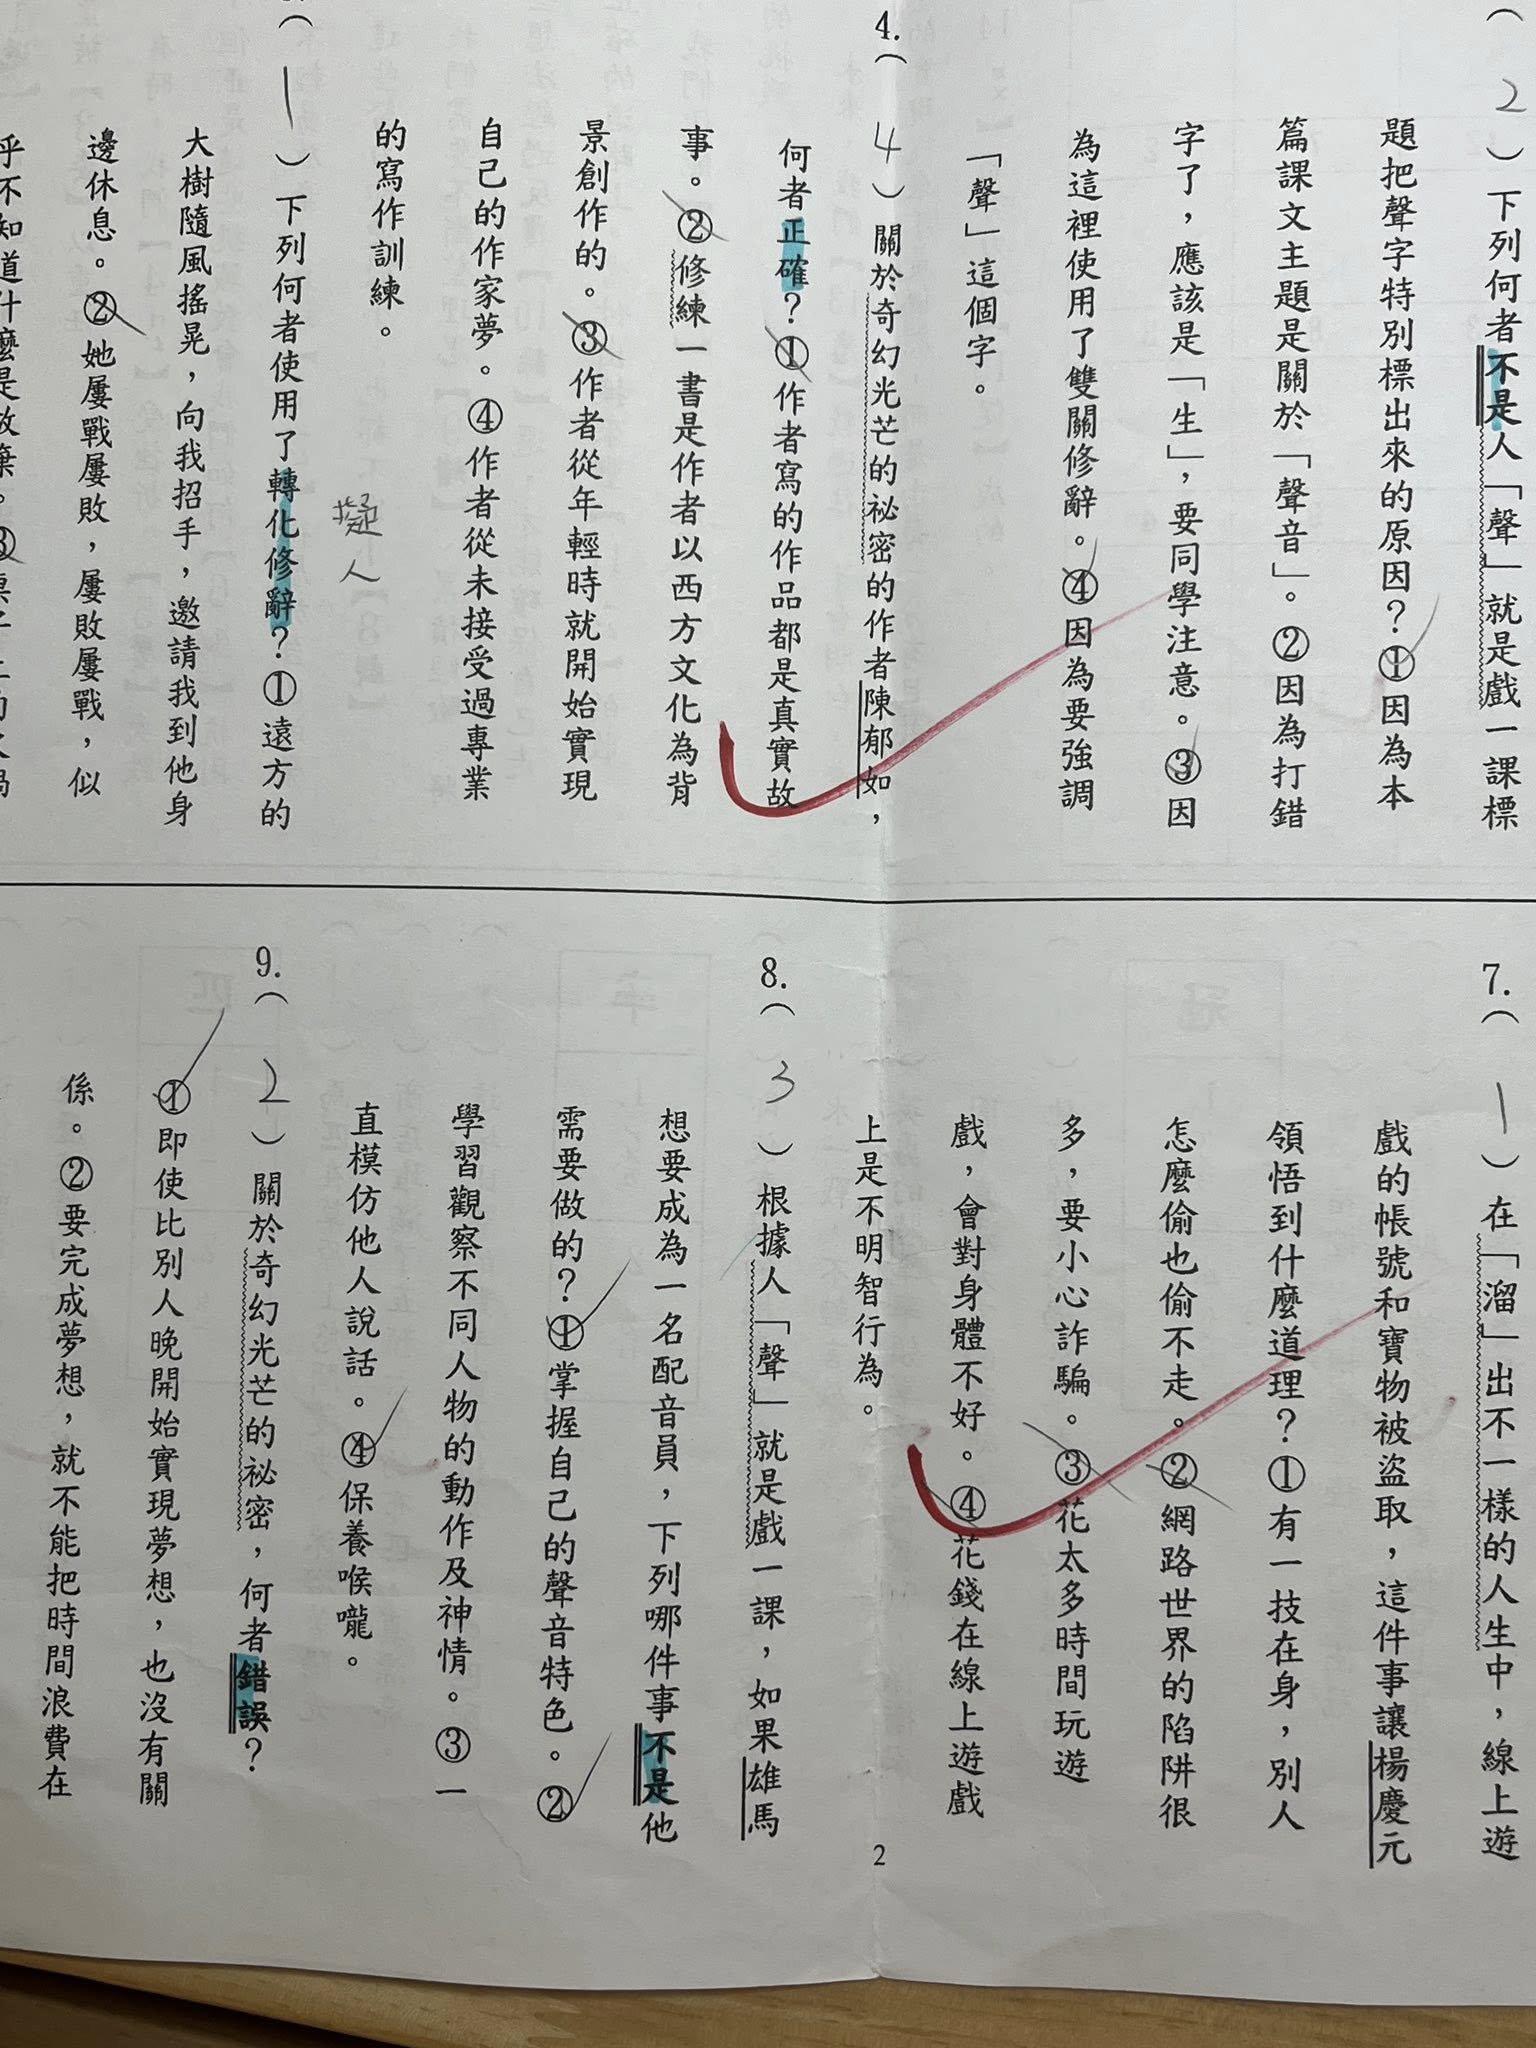 ( 2 )下列何者不是人「聲」就是戲一課標
題把聲字特別標出來的原因？①因為本
篇課文主題是關於「聲音」。②因為打錯
字了，應該是「生」，要同學注意。③因
為這裡使用了雙關修辭。④因為要強調
「聲」這個字。
4.( 4 )關於奇幻光芒的祕密的作者陳郁如，
何者正確？①作者寫的作品都是真實故
事。②修練一書是作者以西方文化為背
景創作的。③作者從年輕時就開始實現
自己的作家夢。④作者從未接受過專業
的寫作訓練。
擬人
( 1 )下列何者使用了轉化修辭？①遠方的
大樹隨風搖晃，向我招手，邀請我到他身
邊休息。②她屢戰屢敗，屢敗屢戰，似
乎不知道什麼是放棄。③桌子上的火鍋
7.( 1 )在「溜」出不一樣的人生中，線上遊
戲的帳號和寶物被盜取，這件事讓楊慶元
領悟到什麼道理？①有一技在身，別人
怎麼偷也偷不走。②網路世界的陷阱很
多，要小心詐騙。③花太多時間玩遊
戲，會對身體不好。④花錢在線上遊戲
上是不明智行為。
8.( 3 )根據人「聲」就是戲一課，如果雄馬
想要成為一名配音員，下列哪件事不是他
需要做的？①掌握自己的聲音特色。②
學習觀察不同人物的動作及神情。③一
直模仿他人說話。④保養喉嚨。
9.( 2 )關於奇幻光芒的祕密，何者錯誤？
①即使比別人晚開始實現夢想，也沒有關
係。②要完成夢想，就不能把時間浪費在
2